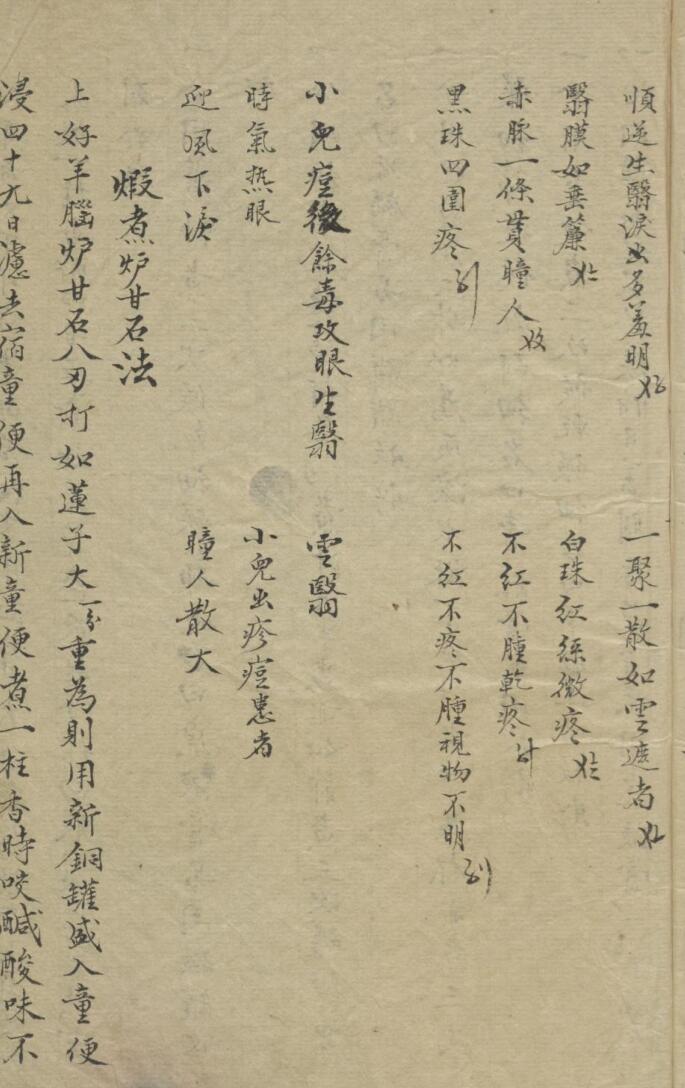 順逆生翳淚出多羞明 一聚一散如雲遮者
翳膜如垂簾 白珠紅絲微疼
赤脉一條貫瞳人 不紅不腫乾疼
黑珠四圍疼 不紅不疼不腫視物不明
小兒痘後餘毒攻眼生翳 雲翳
時氣热眼 小兒出疹痘患者
迎風下淚 瞳人散大
煆煮炉甘石法
上好羊腦炉甘石八刄打如蓮子大一分重為則用新銅罐盛入童便
浸四十九日濾去宿童便再入新童便煮一柱香時咬醎酸味不